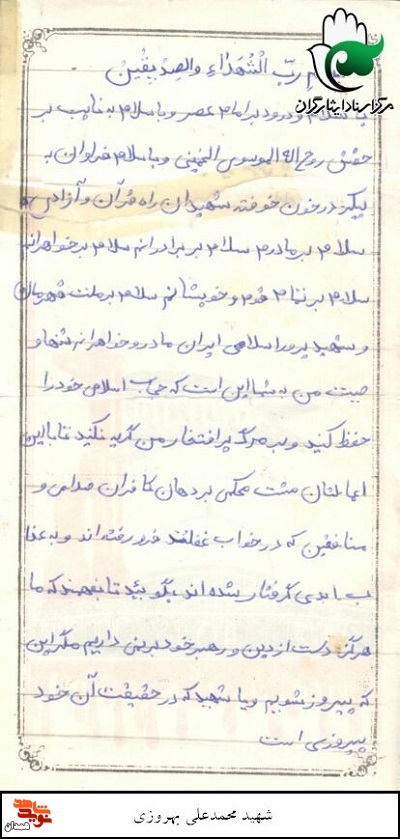 مرکز اسناد ایثارگران
بنام ربّ الشُهداءِ والصِدیقین
با سلام و درود بر امام عصر و با سلام به نایب بر
حقش روح الله الموسوی الخمینی و با سلام فراوان به
پیکر در خون خوفته شهیدان راه قرآن و آزادی
سلام بر مادرم سلام بر برادرانم سلام بر خواهرانم
سلام بر تمام قوم و خویشانم سلام بر ملت قهرمان
و شهید پرور اسلامی ایران مادر و خواهرانم تنها و
صیت من به شما این است که حجاب اسلامی خود را
حفظ کنید و بر مرگ پر افتخار من گریه نکنید تا با این
اعمالتان مشت محکمی بر دهان کافران صدامی و
منافقین که در خواب غفلت فرو رفته اند و به عذا
ب ابدی گرفتار شده اند، بگوئید تا بفهمند که ما
هرگز دست از دین و رهبر خود بر نمی داریم مگر این
که پیروز شویم و یا شهید که در حقیقت آن خود
پیروزی است
نوید شاهد
همدان
شهید محمدعلی بهروزی